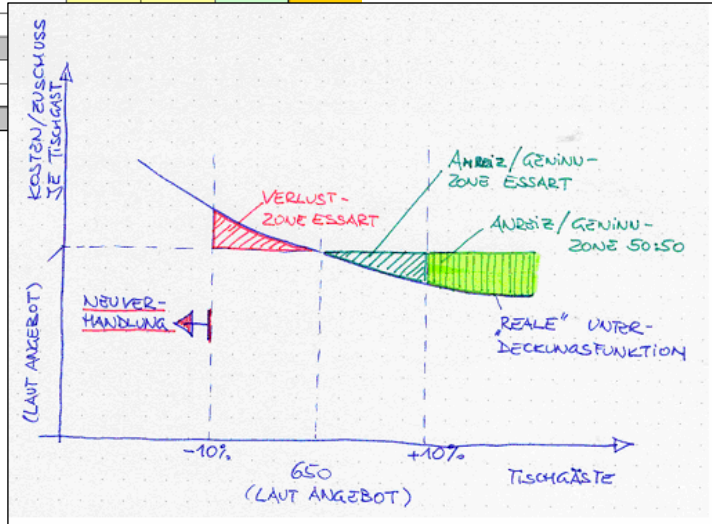 KOSTEN/ZUSCHUSS
JE TISCHGAST
(LAUT ANGEBOT)
VERLUST-
ZONE ESSART
ANREIZ/GEWINN-
ZONE ESSART
ANREIZ/GEWINN-
ZONE 50:50
NEUVER-
HANDLUNG
„REALE" UNTER-
DECKUNGSFUNKTION
-10%
650
(LAUT ANGEBOT)
+10%
TISCHGÄSTE